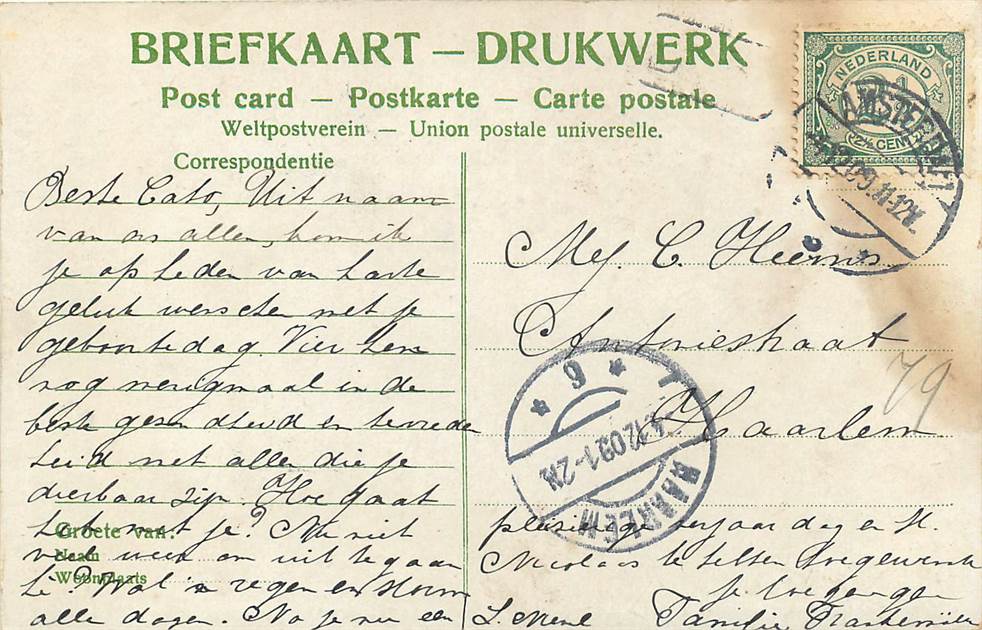 BRIEFKAART — DRUKWERK
Post card — Postkarte — Carte postale
Weltpostverein — Union postale universelle.
Correspondentie
NEDERLAND
2½ CENT
AMSTERDAM
12.09. 11-12V.
Beste Cato, Uit naam
van ons allen, kom ik
je op heden van harte
geluk wenschen met je
geboortedag. Vier hem
nog menigmaal in de
beste gezondheid en tevreden
heid met allen die je
dierbaar zijn. Hoe gaat
het met je? Nu niet
veel weer om uit te gaan
hè? Wat 'n regen en storm
alle dagen. Nu je nu een
Groete van:
Naam
Woonplaats
Mej. C. Heems
Antoniestraat
79
Haarlem
4.12.09 1-2N.
HAARLEM
plezierige verjaardag en St.
Nicolaas te hebben toegewenscht
je toegenegen
L. Mene Familie